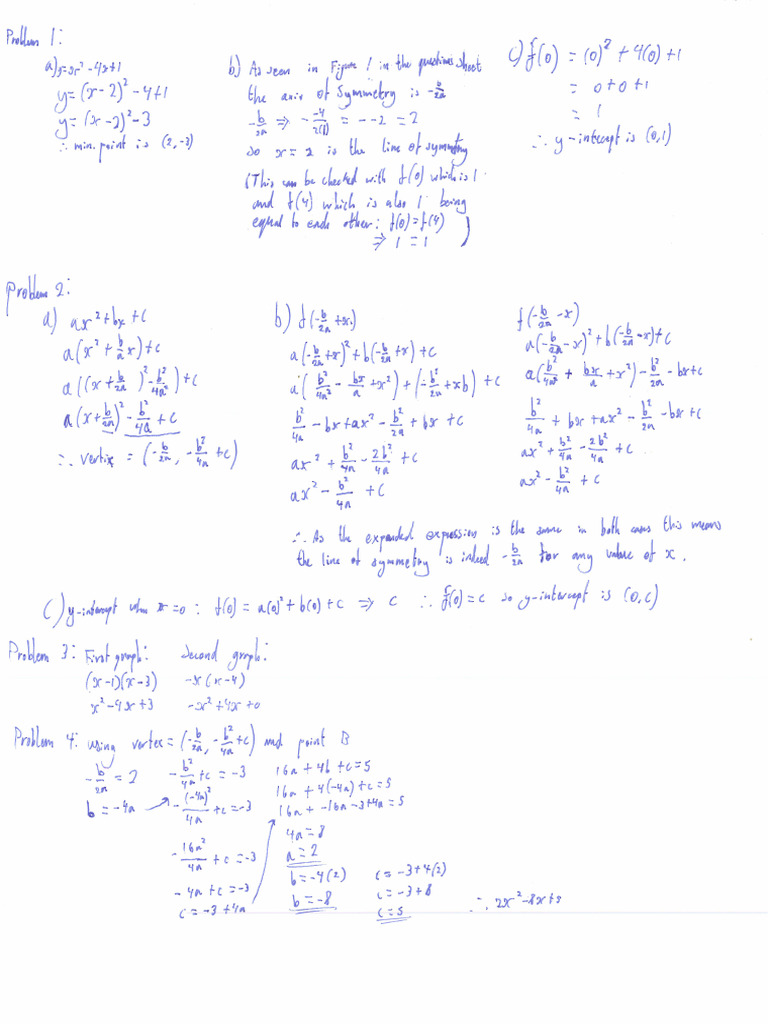 Problem 1:
a) y=x²-4x+1
y=(x-2)²-4+1
y=(x-2)²-3
∴ min. point is (2,-3)
b) As seen in Figure 1 in the questions sheet
the axis of symmetry is -b/2a
-b/2a ⇒ - -4/2(1) = --2 = 2
so x=2 is the line of symmetry
(This can be checked with f(0) which is 1
and f(4) which is also 1 being
equal to each other: f(0)=f(4)
⇒ 1=1)
c) f(0) = (0)² + 4(0) + 1
= 0+0+1
= 1
∴ y-intercept is (0,1)
Problem 2:
a) ax²+bx+c
a(x²+b/a x)+c
a((x+b/2a)²-b²/4a²)+c
a(x+b/2a)²-b²/4a+c
∴ vertix = (-b/2a, -b²/4a+c)
b) f(-b/2a+x)
a(-b/2a+x)²+b(-b/2a+x)+c
a(b²/4a² - bx/a +x²)+(-b²/2a+xb)+c
b²/4a -bx+ax²-b²/2a+bx+c
ax²+b²/4a-2b²/4a+c
ax²-b²/4a+c
f(-b/2a-x)
a(-b/2a-x)²+b(-b/2a-x)+c
a(b²/4a²+bx/a+x²)-b²/2a-bx+c
b²/4a+bx+ax²-b²/2a-bx+c
ax²+b²/4a-2b²/4a+c
ax²-b²/4a+c
∴ As the expanded expression is the same in both cases this means
the line of symmetry is indeed -b/2a for any value of x.
c) y-intercept when x=0: f(0)=a(0)²+b(0)+c ⇒ c ∴ f(0)=c so y-intercept is (0,c)
Problem 3: First graph: Second graph:
(x-1)(x-3) -x(x-4)
x²-4x+3 -x²+4x+0
Problem 4: using vertex=(-b/2a, -b²/4a+c) and point B
-b/2a=2
b=-4a
-b²/4a+c=-3
-(-4a)²/4a+c=-3
-16a²/4a+c=-3
-4a+c=-3
c=-3+4a
16a+4b+c=5
16a+4(-4a)+c=5
16a+-16a-3+4a=5
4a=8
a=2
b=-4(2)
b=-8
c=-3+4(2)
c=-3+8
c=5
∴ 2x²-8x+5